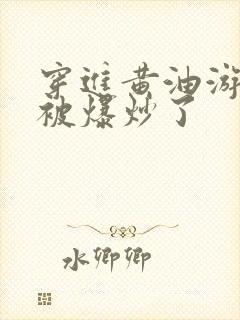 穿进黄油游
被爆炒了
水卿卿